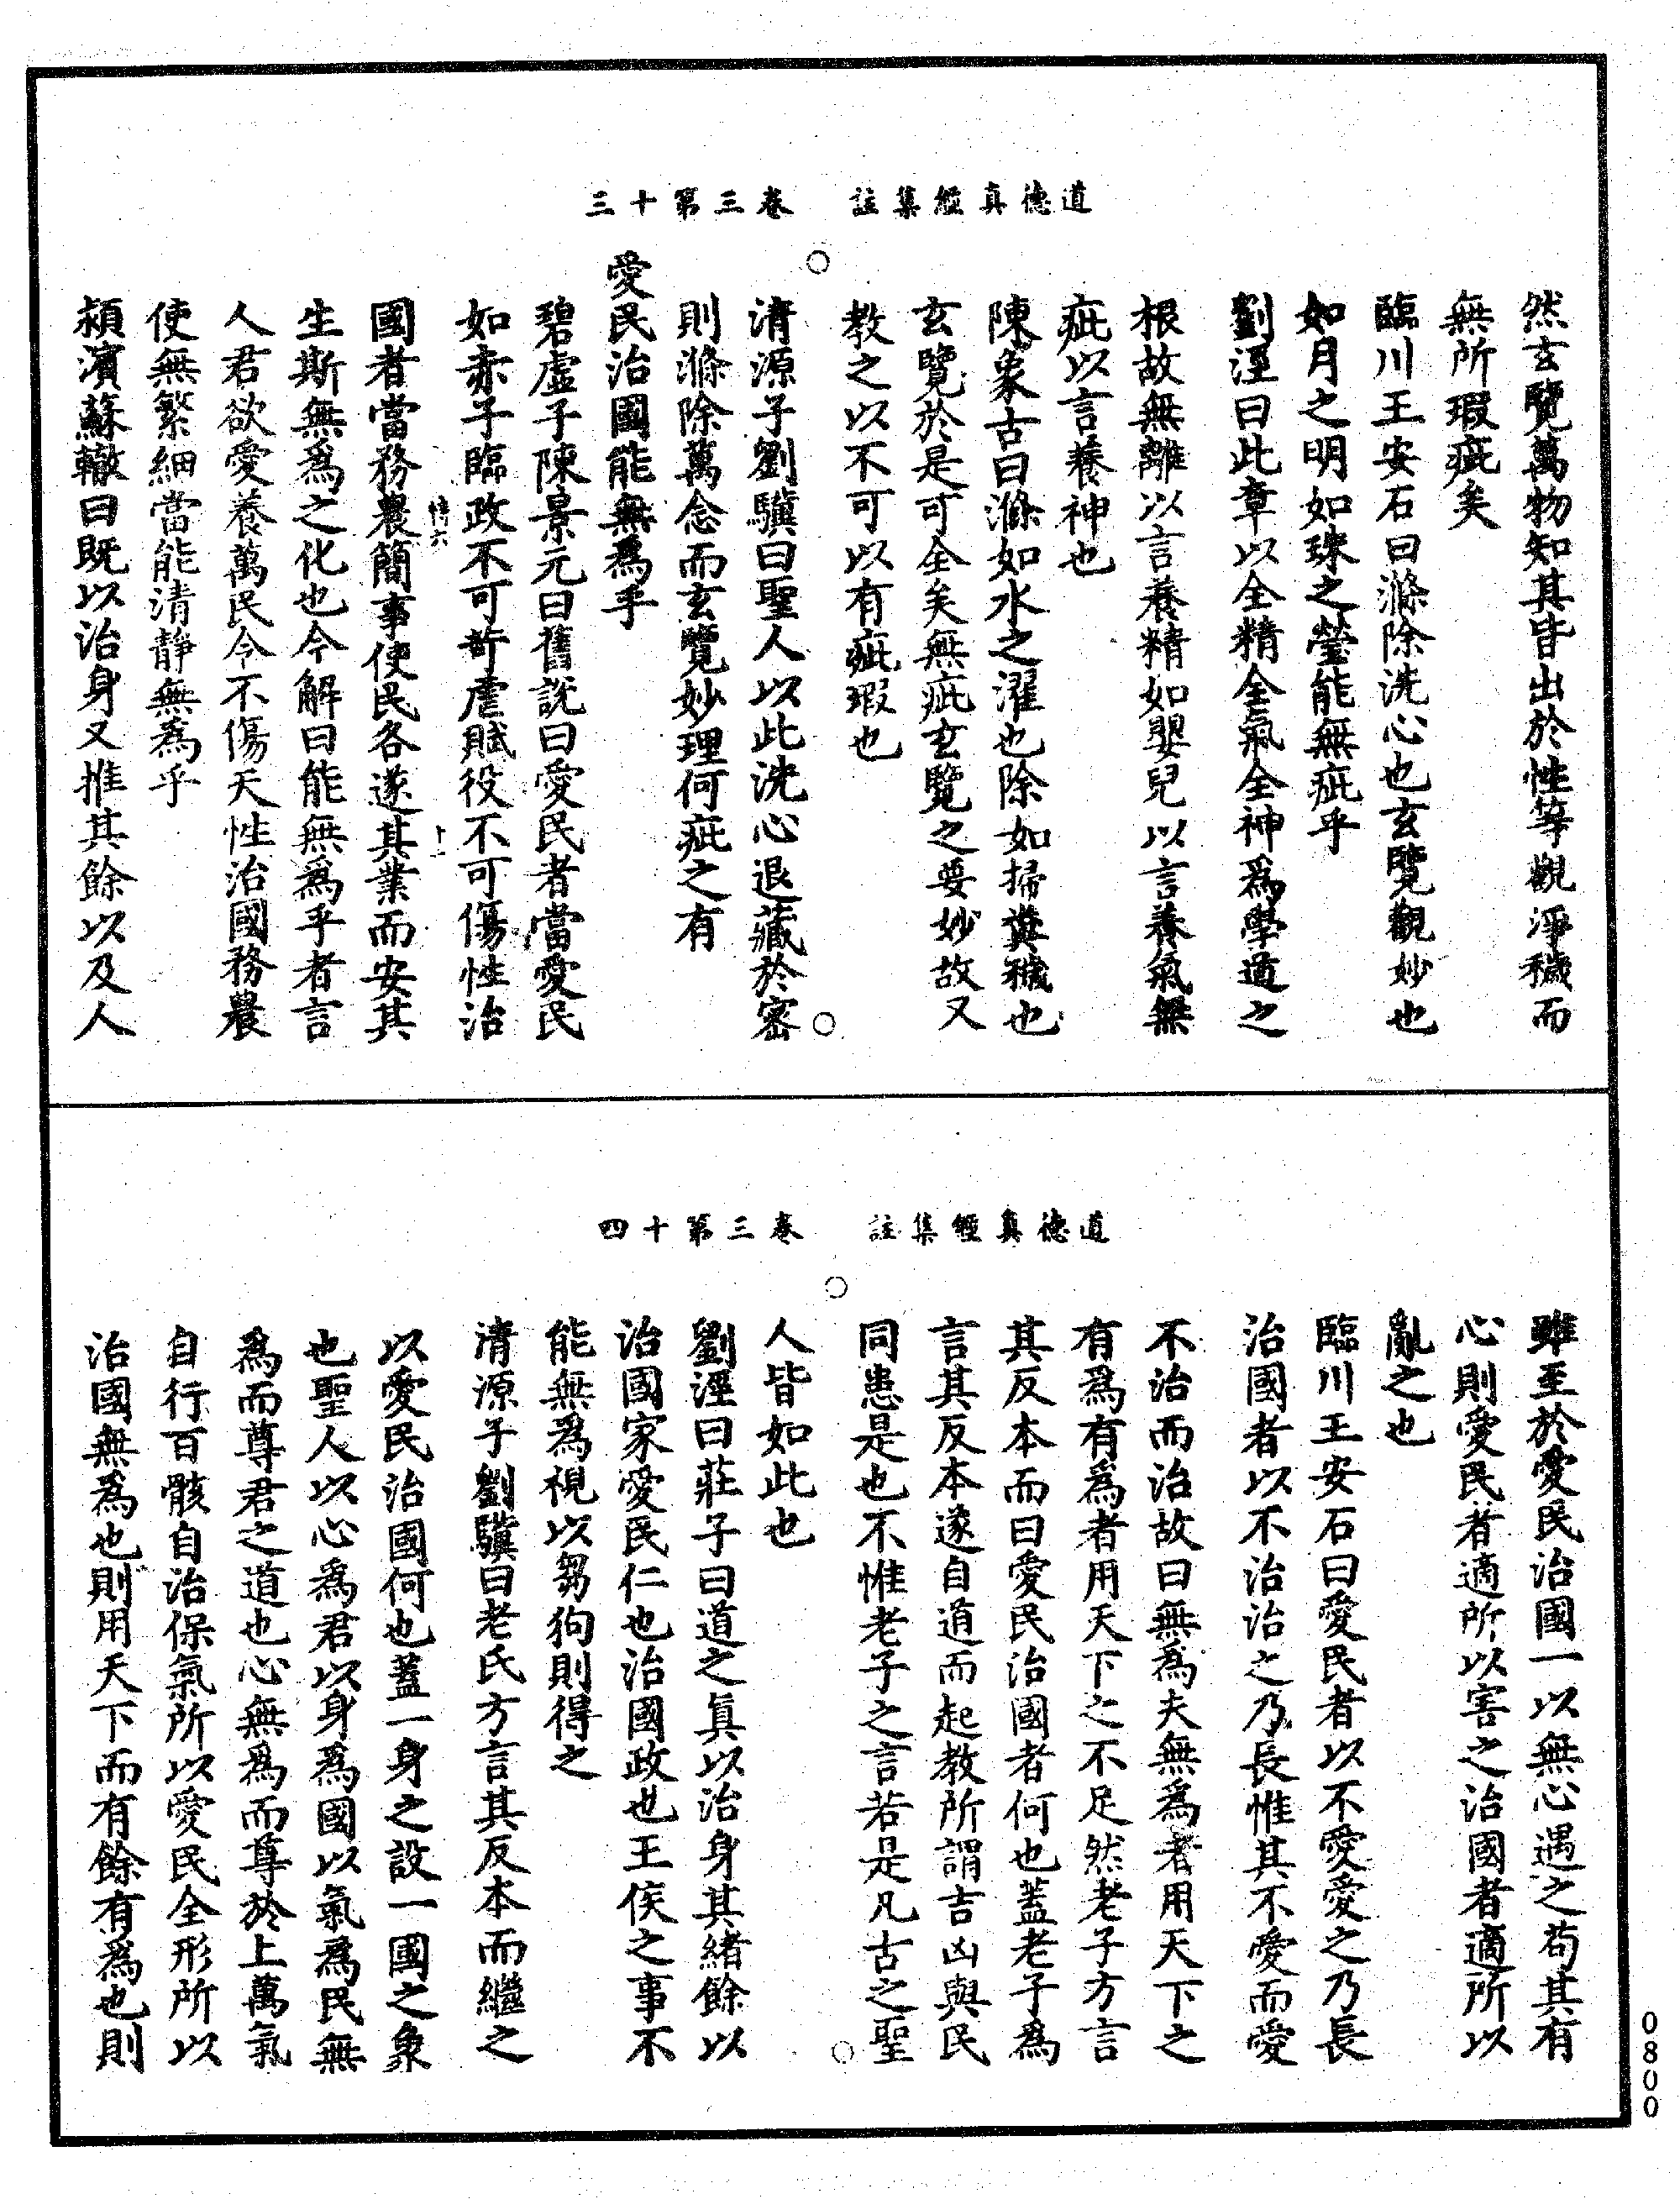 道德真經集註　卷三第十三
然玄覽萬物知其皆出於性等觀淨穢而
無所瑕疵矣
臨川王安石曰滌除洗心也玄覽觀妙也
如月之明如珠之瑩能無疵乎
劉涇曰此章以全精全氣全神爲學道之
根故無離以言養精如嬰兒以言養氣無
疵以言養神也
陳象古曰滌如水之濯也除如掃糞穢也
玄覽於是可全矣無疵玄覽之要妙故又
教之以不可以有疵瑕也
清源子劉驥曰聖人以此洗心退藏於密
則滌除萬念而玄覽妙理何疵之有
愛民治國能無爲乎
碧虛子陳景元曰舊說曰愛民者當愛民
如赤子臨政不可苛虐賦役不可傷性治
情六　十二
國者當務農簡事使民各遂其業而安其
生斯無爲之化也今解曰能無爲乎者言
人君欲愛養萬民令不傷天性治國務農
使無繁細當能清靜無爲乎
潁濱蘇轍曰既以治身又推其餘以及人
道德真經集註　卷三第十四
雖至於愛民治國一以無心遇之苟其有
心則愛民者適所以害之治國者適所以
亂之也
臨川王安石曰愛民者以不愛愛之乃長
治國者以不治治之乃長惟其不愛而愛
不治而治故曰無爲夫無爲者用天下之
有爲有爲者用天下之不足然老子方言
其反本而曰愛民治國者何也蓋老子爲
言其反本遂自道而起教所謂吉凶與民
同患是也不惟老子之言若是凡古之聖
人皆如此也
劉涇曰莊子曰道之真以治身其緒餘以
治國家愛民仁也治國政也王侯之事不
能無爲視以芻狗則得之
清源子劉驥曰老氏方言其反本而繼之
以愛民治國何也蓋一身之設一國之象
也聖人以心爲君以身爲國以氣爲民無
爲而尊君之道也心無爲而尊於上萬氣
自行百骸自治保氣所以愛民全形所以
治國無爲也則用天下而有餘有爲也則
0800